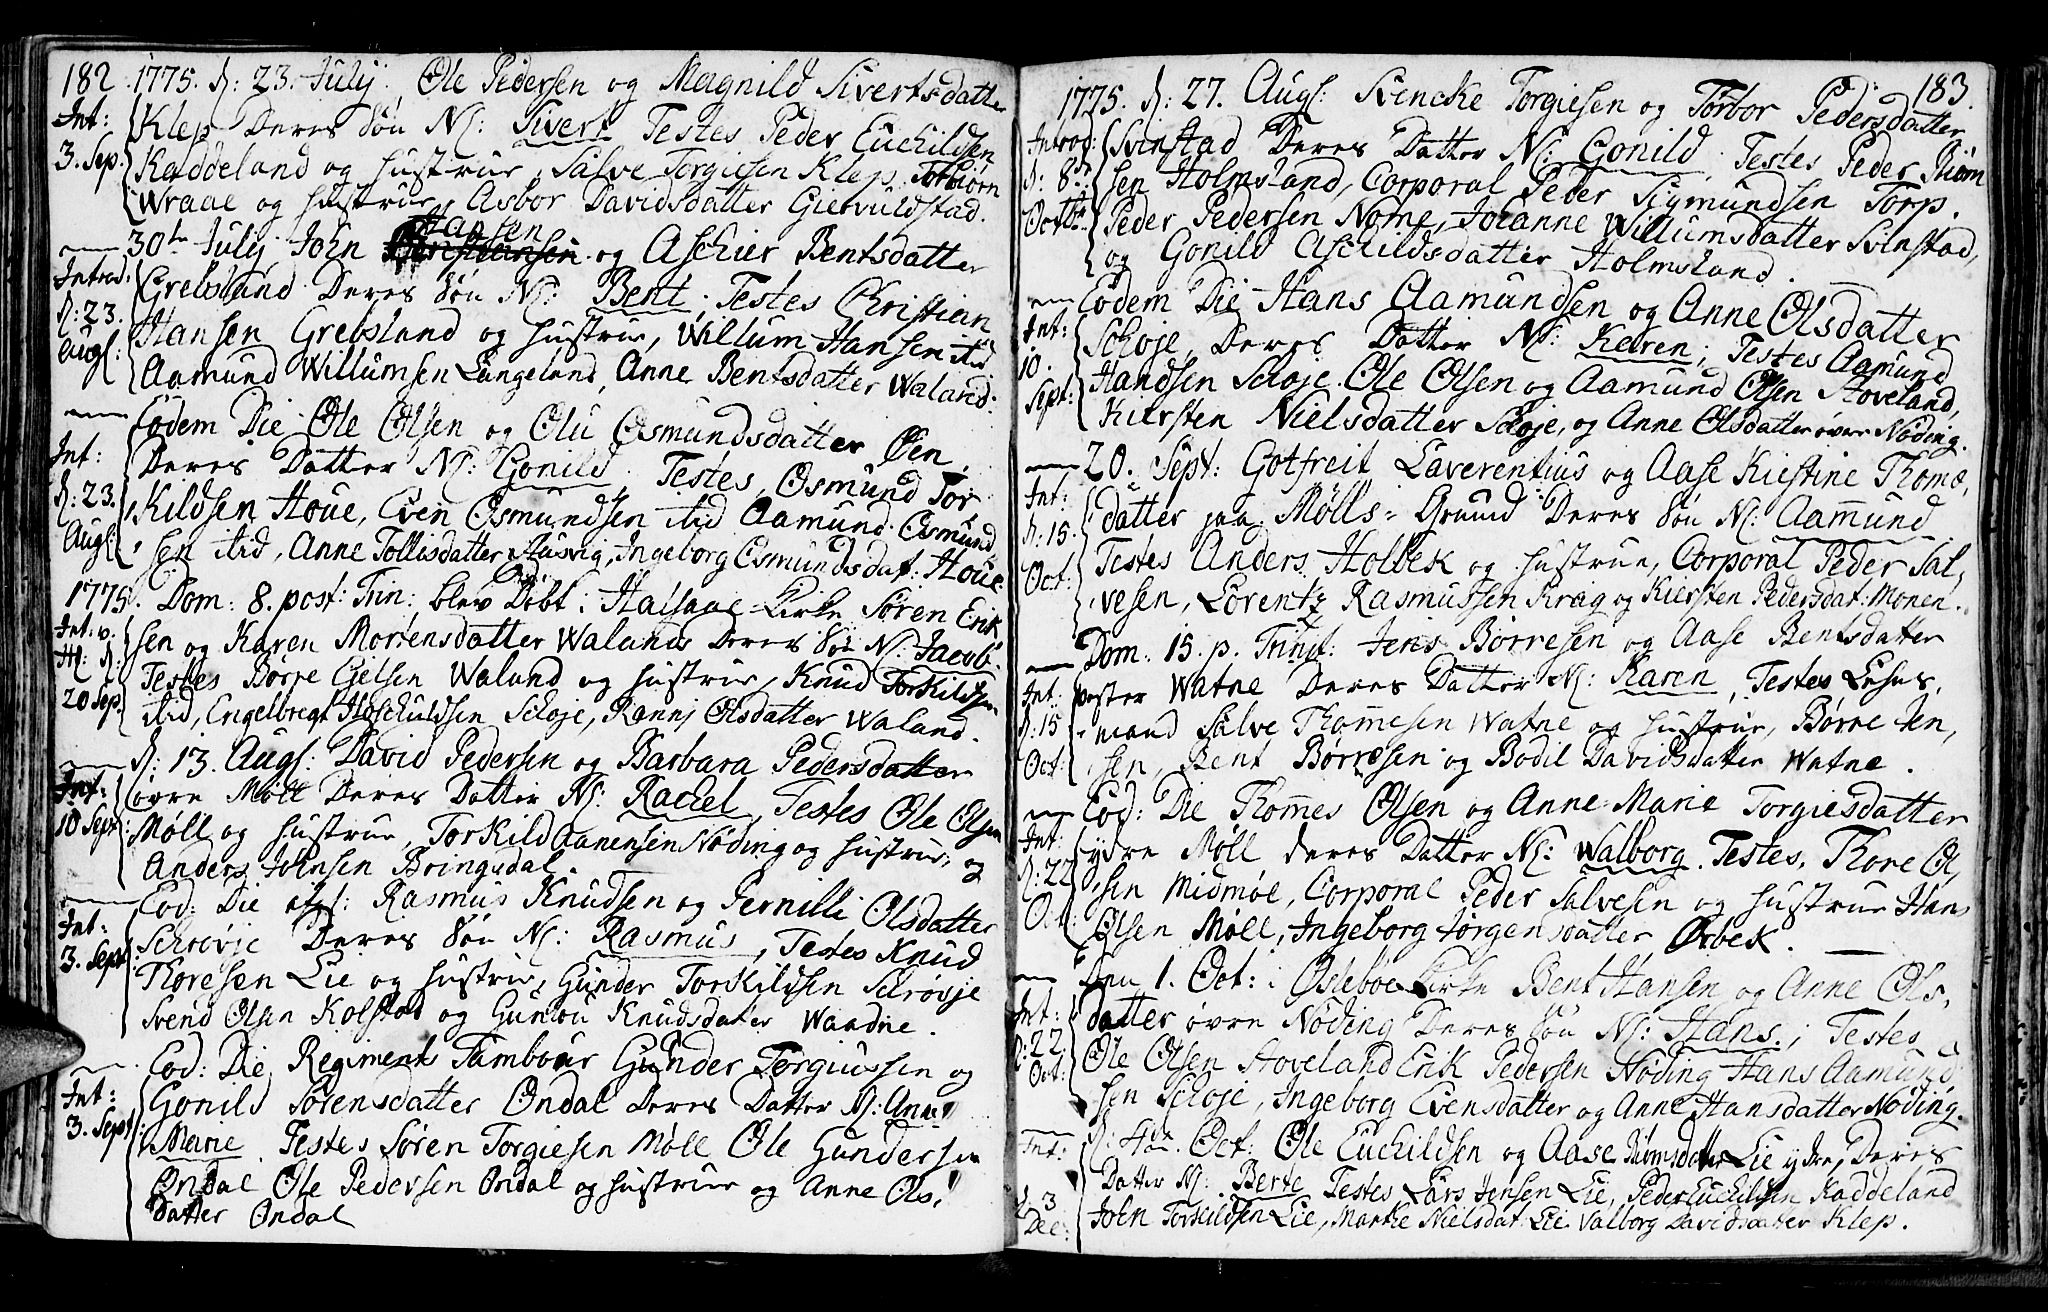 182. 1775. d: 23. July. Ole Pedersen og Magnild Sivertsdatter
Int: Klep Deres Søn N: Sivert Testes Peder Euchildsen
3. Sep. Kaddeland og hustrue, Salve Torgiesen Klep, Torbiørn
Wraae og hustrue, Asbor Davidsdatter Giervuldstad.
Hansen
30te July John og Aschier Bentsdatter
Introd: Grebsland Deres Søn N: Bent. Testes Christian
d: 23. Hansen Grebsland og hustrue, Willum Hansen itid
Augs: Aamund Willumsen Langeland, Anne Bentsdatter Waland.
Eodem Die Ole Olsen og Olu Osmundsdatter Øen,
Int: Deres Datter N: Gonild. Testes, Osmund Tor,
d: 23. Kildsen Houe, Even Osmundsen itid Aamund Osmund
Augs: sen itid, Anne Tollisdatter Ausvig, Ingeborg Osmundsdat: Houe.
1775. Dom: 8. post: Trin: blev Døbt i Halsaae Kirke Søren Erik
Int: v. sen og Karen Mortensdatter Waland Deres Søn N: Jacob.
H: d: Testes Børre Eielsen Waland og hustrue, Knud Torkildsen
20 Sep. itid, Engelbregt Hoschuldsen Schoje, Rannj Olsdatter Waland.
d: 13. Augs: David Pedersen og Barbara Pedersdatter
Int: øvre Møll Deres Datter N: Rachel, Testes Ole Olsen
10 Sept: Møll og hustrue, Torkild Aanensen Nøding og hustrue, og
Anders Johnsen Bringsdal.
Eod: Die Rasmus Knudsen og Pernille Olsdatter
Int: Schrovje Deres Søn N: Rasmus, Testes Knud
3. Sept: Thoresen Lie og hustrue, Gunder Torkildsen Schrovje
Svend Olsen Kolstad og Gunlou Knudsdatter Waadne.
Eod: Die Regiments Tambour Gunder Torgiussen og
Int: Gonild Sørensdatter Ondal Deres Datter N: Anne
3. Sept: Marie. Testes Søren Torgiesen Møll Ole Gundersen
Ondal Ole Pedersen Ondal og hustrue og Anne Ols,
datter Ondal
183.
1775. d: 27. Augs: Svencke Torgiesen og Torbor Pedersdatter
Introd: Svinstad Deres Datter N: Gonild. Testes Peder Biørn
d: 8de sen Holmsland, Corporal Peder Sigmundsen Torp.
Octb: Peder Pedersen Nome, Johanne Willumsdatter Svinstad,
og Gonild Aschildsdatter Holmsland.
Eodem Die Hans Aamundsen og Anne Olsdatter
Int: Schoje, Deres Datter N: Karen; Testes Aamund
10. Handsen Schoje. Ole Olsen og Aamund Olsen Hoveland,
Sept: Kiersten Nielsdatter Schoje, og Anne Olsdatter øvre Nøding.
20. Sept: Gotfreit Laverentius og Aase Kiestine Thome,
Int: datter paa Mølls-Grund Deres Søn N: Aamund.
d: 15. Testes Anders Holbek og hustrue, Corporal Peder Sal,
Oct: vesen, Lorentz Rasmussen Krag og Kiersten Pedersdat: Monen.
Dom: 15. p. Trinit: Jens Børresen og Aase Bentsdatter
Int: vester Watne Deres Datter N: Karen, Testes Lehns,
d: 15 mand Salve Thommesen Watne og hustrue, Børre Jen,
Oct: sen, Bent Børresen og Bodil Davidsdatter Watne.
Eod: Die Thommes Olsen og Anne Marie Torgiesdatter
Int: ydre Møll deres Datter N: Walborg. Testes, Thore Ol,
d: 22 sen Midmøe, Corporal Peder Salvesen og hustrue Hans
Oct: Olsen Møll, Ingeborg Jørgensdatter Orbek.
Den 1. Oct: i Øsleboe Kirke Bent Hansen og Anne Ols,
Int: datter øvre Nøding Deres Søn N: Hans; Testes
d: 22 Ole Olsen Hoveland Erik Pedersen Nøding Hans Aamund
Oct: sen Schoje, Ingeborg Evensdatter og Anne Hansdatter Nøding.
Int: d: 4de Oct: Ole Euchildsen og Aase Biørnsdatter Lie ydre, Deres
Datter N: Berte Testes Lars Jensen Lie, Peder Euchildsen Kaddeland
d. 3 Dec: John Torkildsen Lie, Marthe Nielsdat: Lie Valborg Davidsdatter Klep.